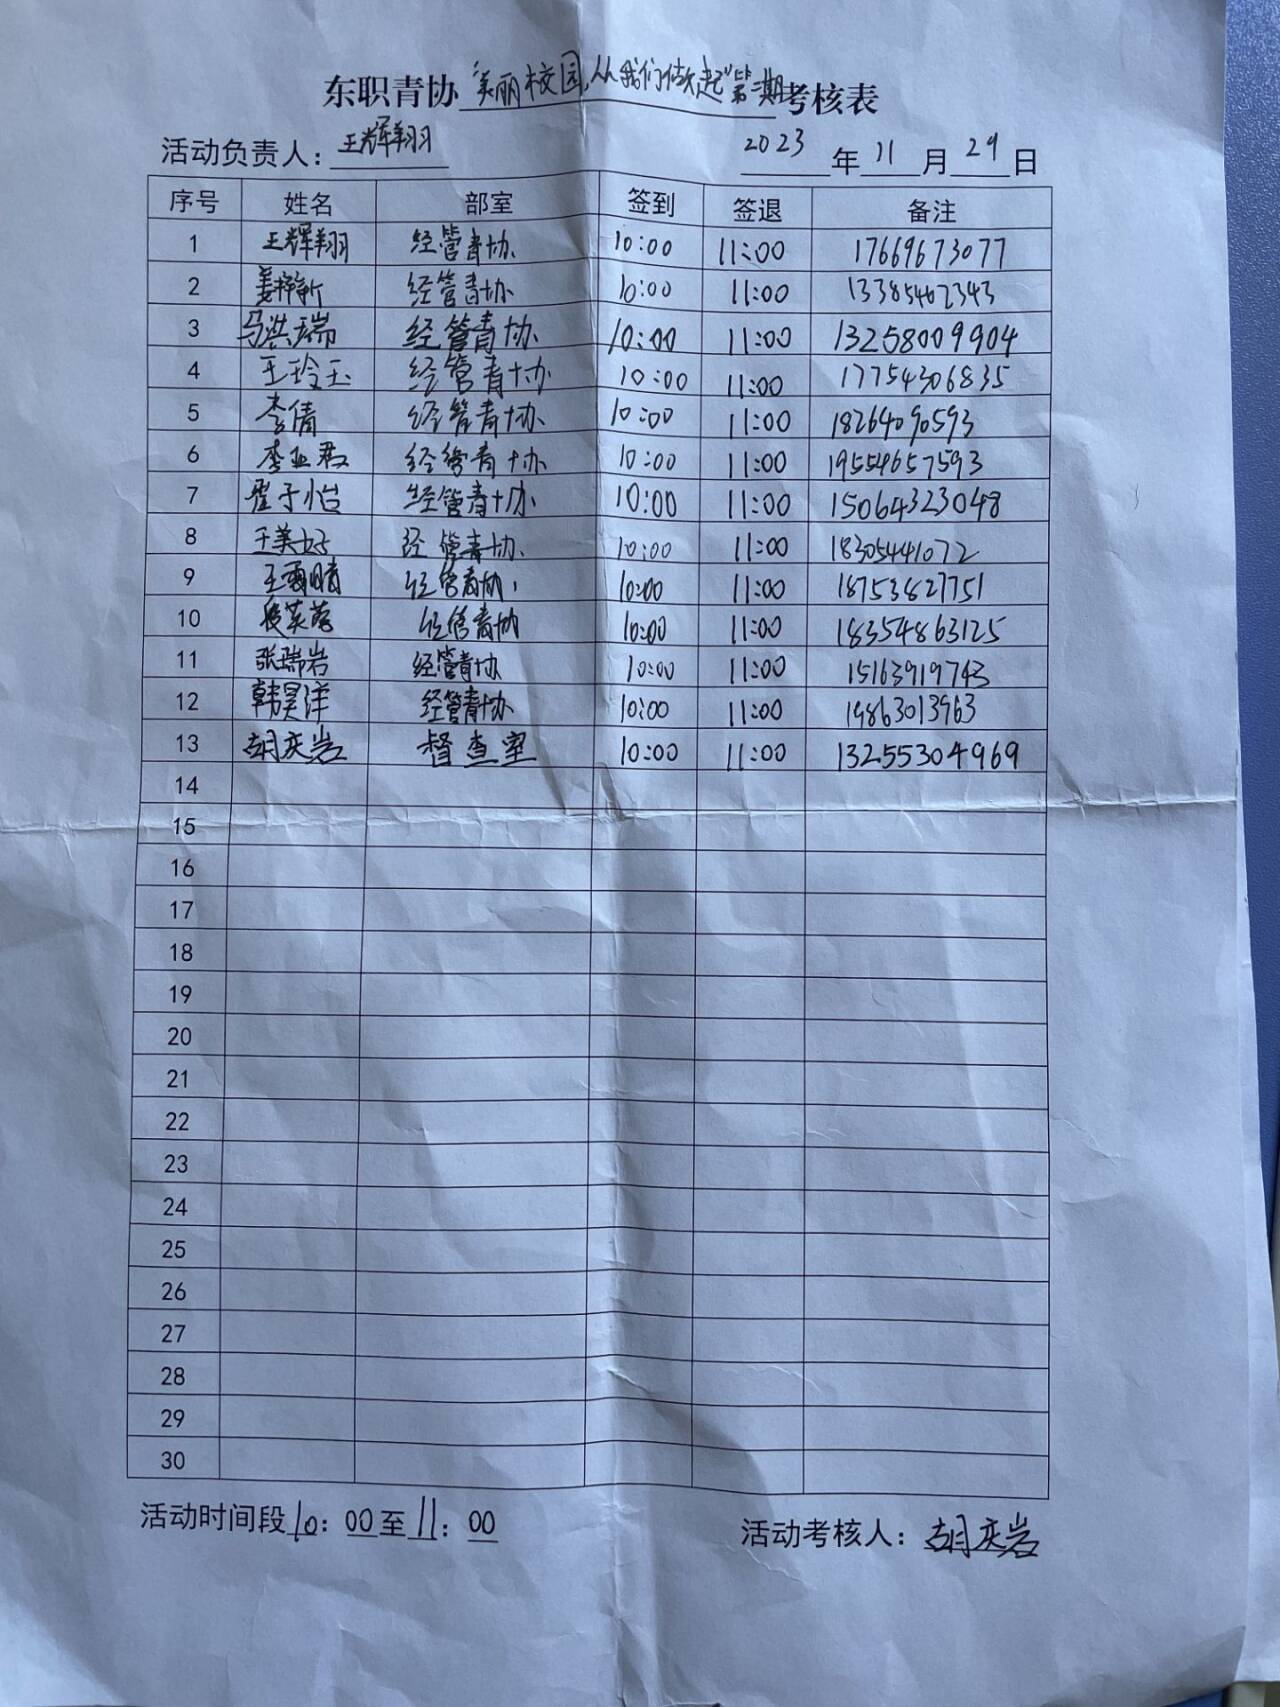 东职青协"美丽校园,从我们做起"第二期考核表
活动负责人：王辉翔 2023 年 11 月 29 日
序号 姓名 部室 签到 签退 备注
1 王辉翔 经管青协 10:00 11:00 17669673077
2 经管青协 10:00 11:00 13385462343
3 马洪瑞 经管青协 10:00 11:00 13258009904
4 王玲玉 经管青协 10:00 11:00 17754306835
5 李倩 经管青协 10:00 11:00 18264090593
6 李亚君 经管青协 10:00 11:00 19554657593
7 翟子怡 经管青协 10:00 11:00 15064323048
8 王美好 经管青协 10:00 11:00 18305441072
9 王雪晴 经管青协 10:00 11:00 18753827751
10 经管青协 10:00 11:00 18354863125
11 张瑞岩 经管青协 10:00 11:00 15163919743
12 韩昊洋 经管青协 10:00 11:00 19863013963
13 胡庆岩 督查室 10:00 11:00 13255304969
14
15
16
17
18
19
20
21
22
23
24
25
26
27
28
29
30
活动时间段 10：00 至 11：00 活动考核人：胡庆岩